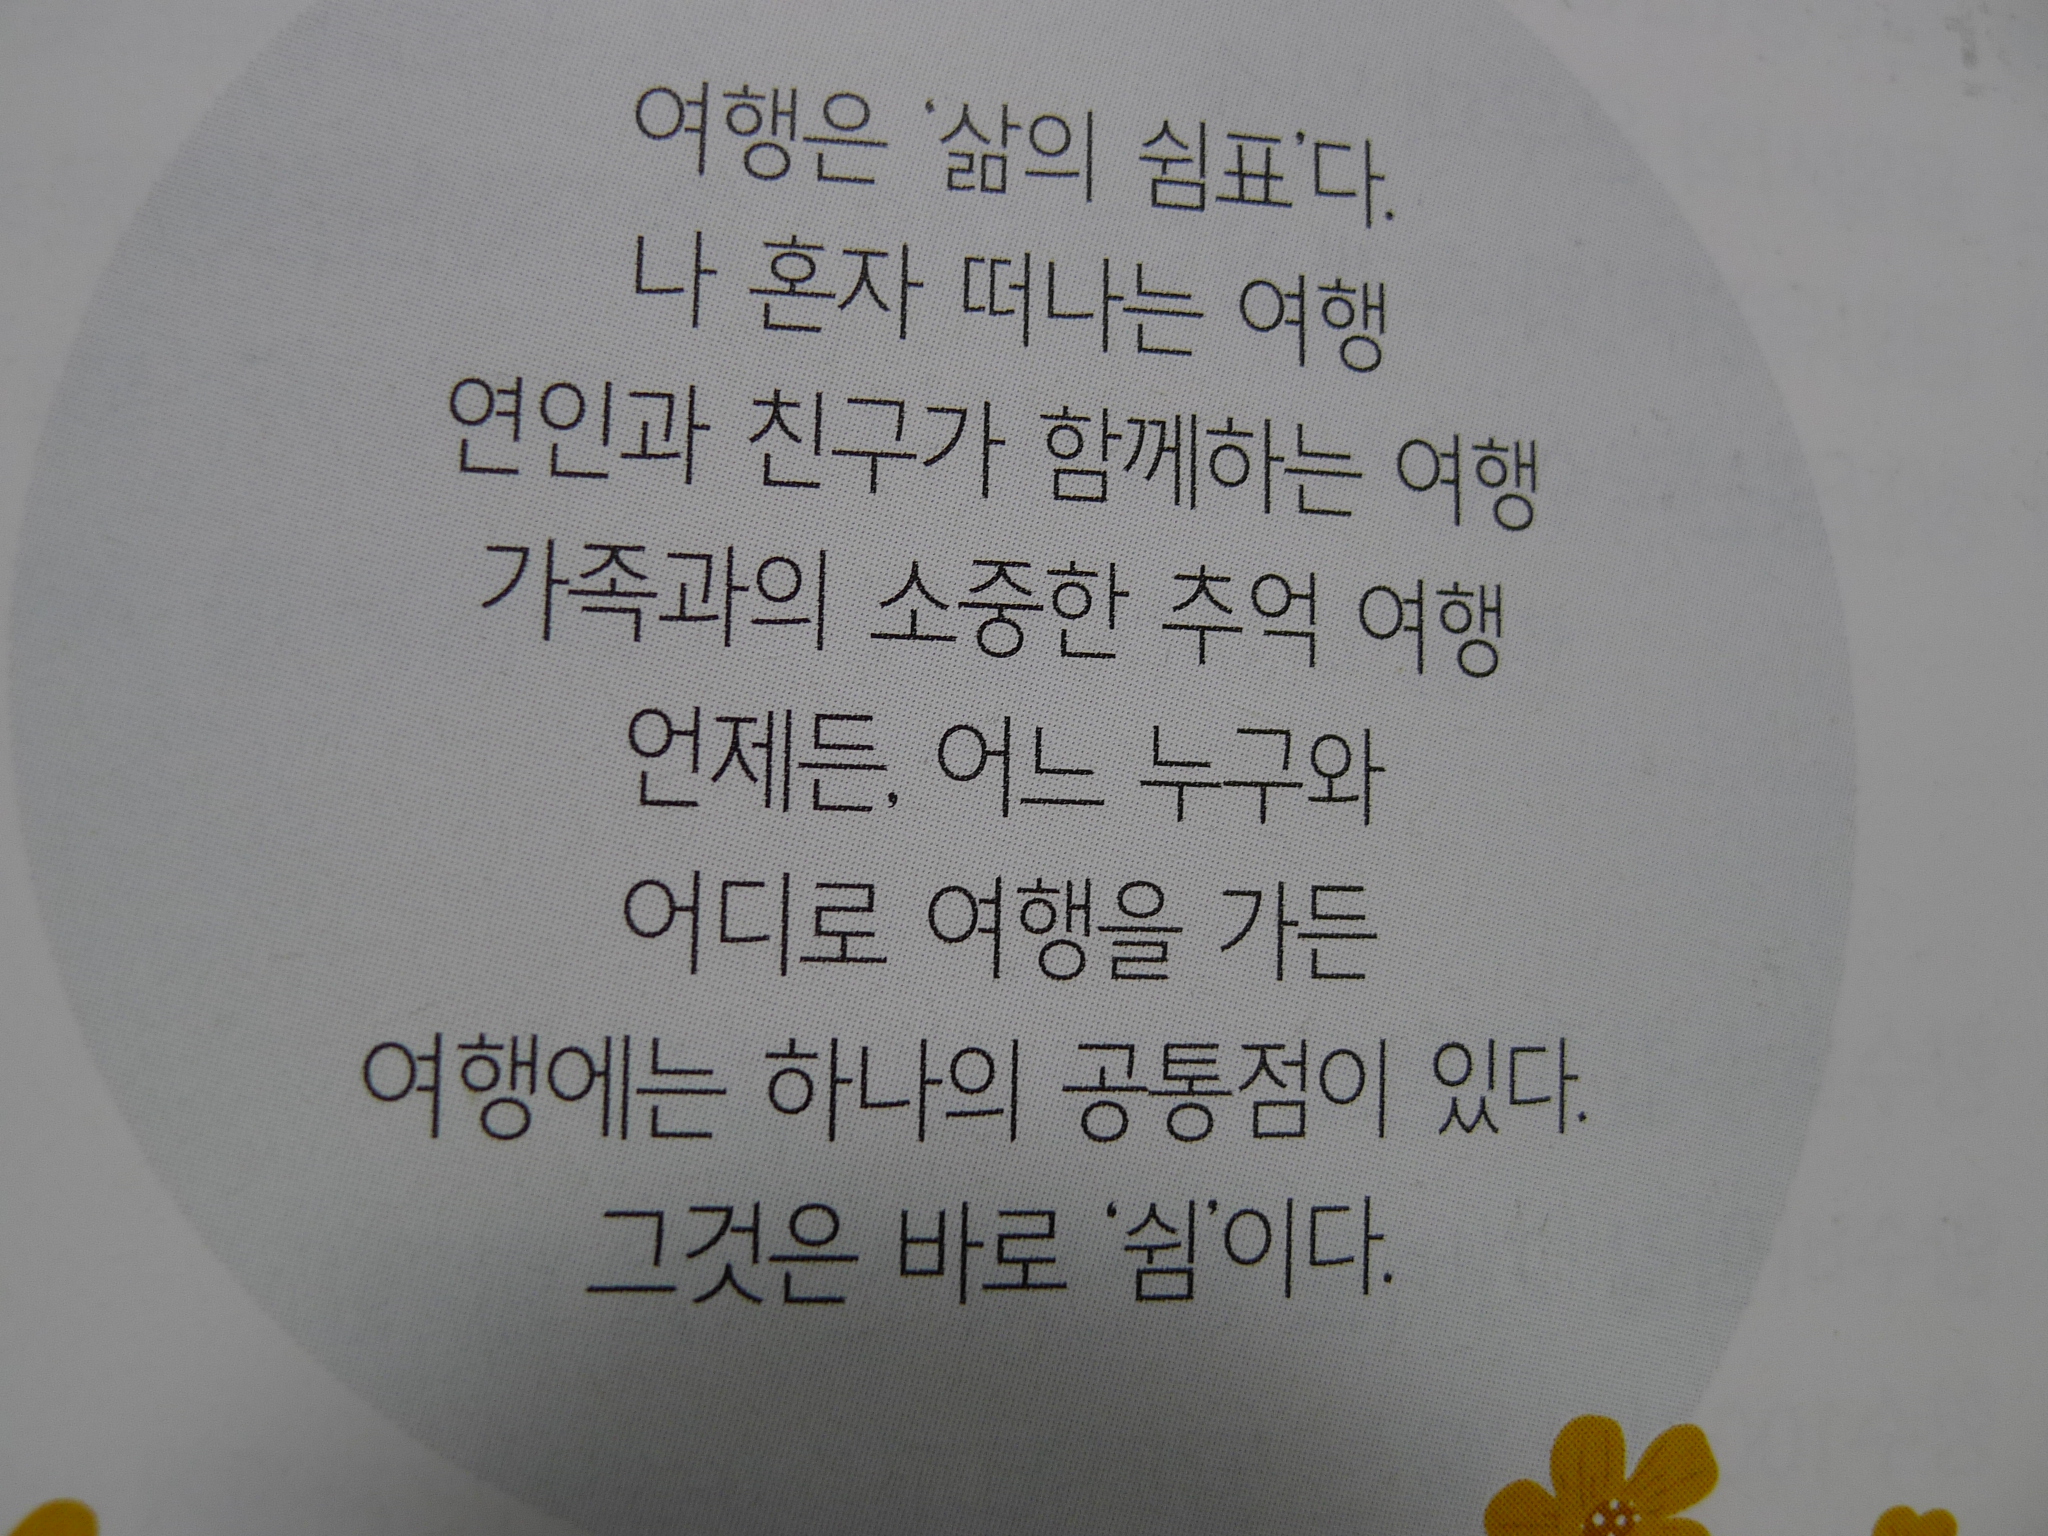 여행은 ‘삶의 쉼표’다.
나 혼자 떠나는 여행
연인과 친구가 함께하는 여행
가족과의 소중한 추억 여행
언제든, 어느 누구와
어디로 여행을 가든
여행에는 하나의 공통점이 있다.
그것은 바로 ‘쉼’이다.